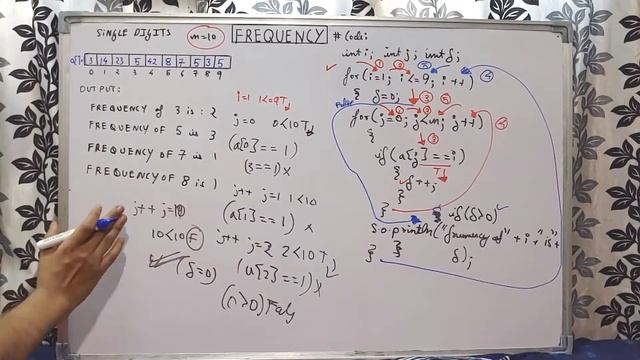 SINGLE DIGITS
m=10
FREQUENCY
# Code:
a[]= 3 14 23 5 42 8 7 5 3 5
0 1 2 3 4 5 6 7 8 9
OUTPUT:
FREQUENCY OF 3 is : 2
FREQUENCY OF 5 is 3
FREQUENCY OF 7 is 1
FREQUENCY OF 8 is 1
j++ j=10
10<10 F
(f=0)
i=1 1<=9T
j=0 0<10T
(a[0]==1)
(3==1)x
j++ j=1 1<10
(a[1]==1) x
j++ j=2 2<10 T
(a[2]==1) x
int i; int j; int f;
for(i=1; i<=9; i++)
{ f=0;
for(j=0; j<m; j++)
{
if(a[j]==i)
{
f++;
}
} if(f>0)
S.o.println("frequency of"+i+"is"+
f);
} }